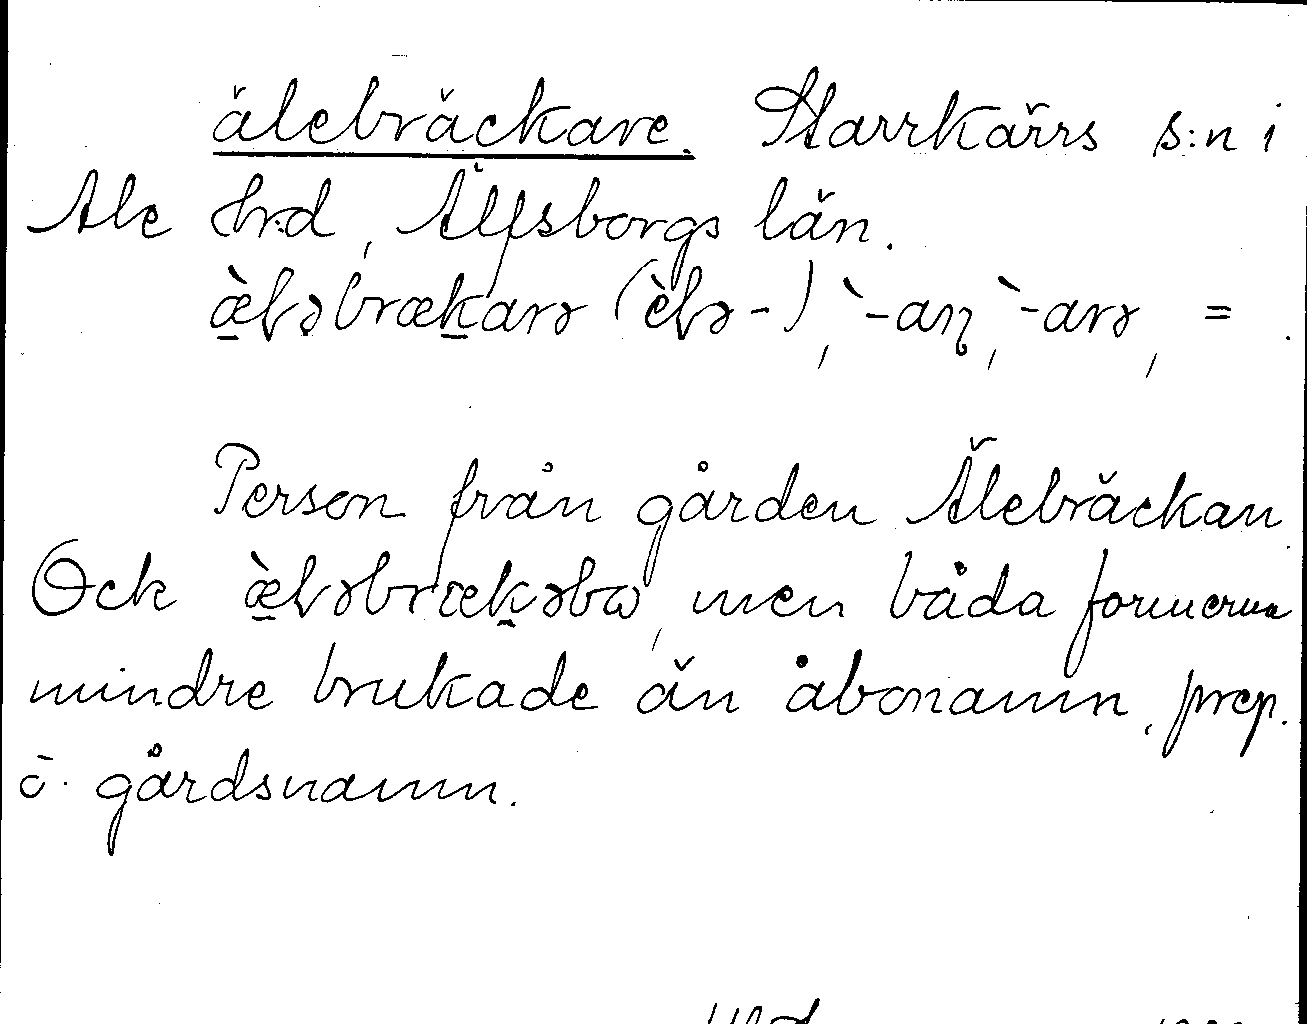 älebräckare. Starrkärrs s:n i
Ale hrd, Älfsborgs län.
æ̀ḷəbrækarə (èḷə-), `-aṇ, `-arə, =
Person från gården Älebräckan
Ock æ̀ḷəbrækəbɷ, men båda formerna
mindre brukade än åbonamn, prep.
o. gårdsnamn.